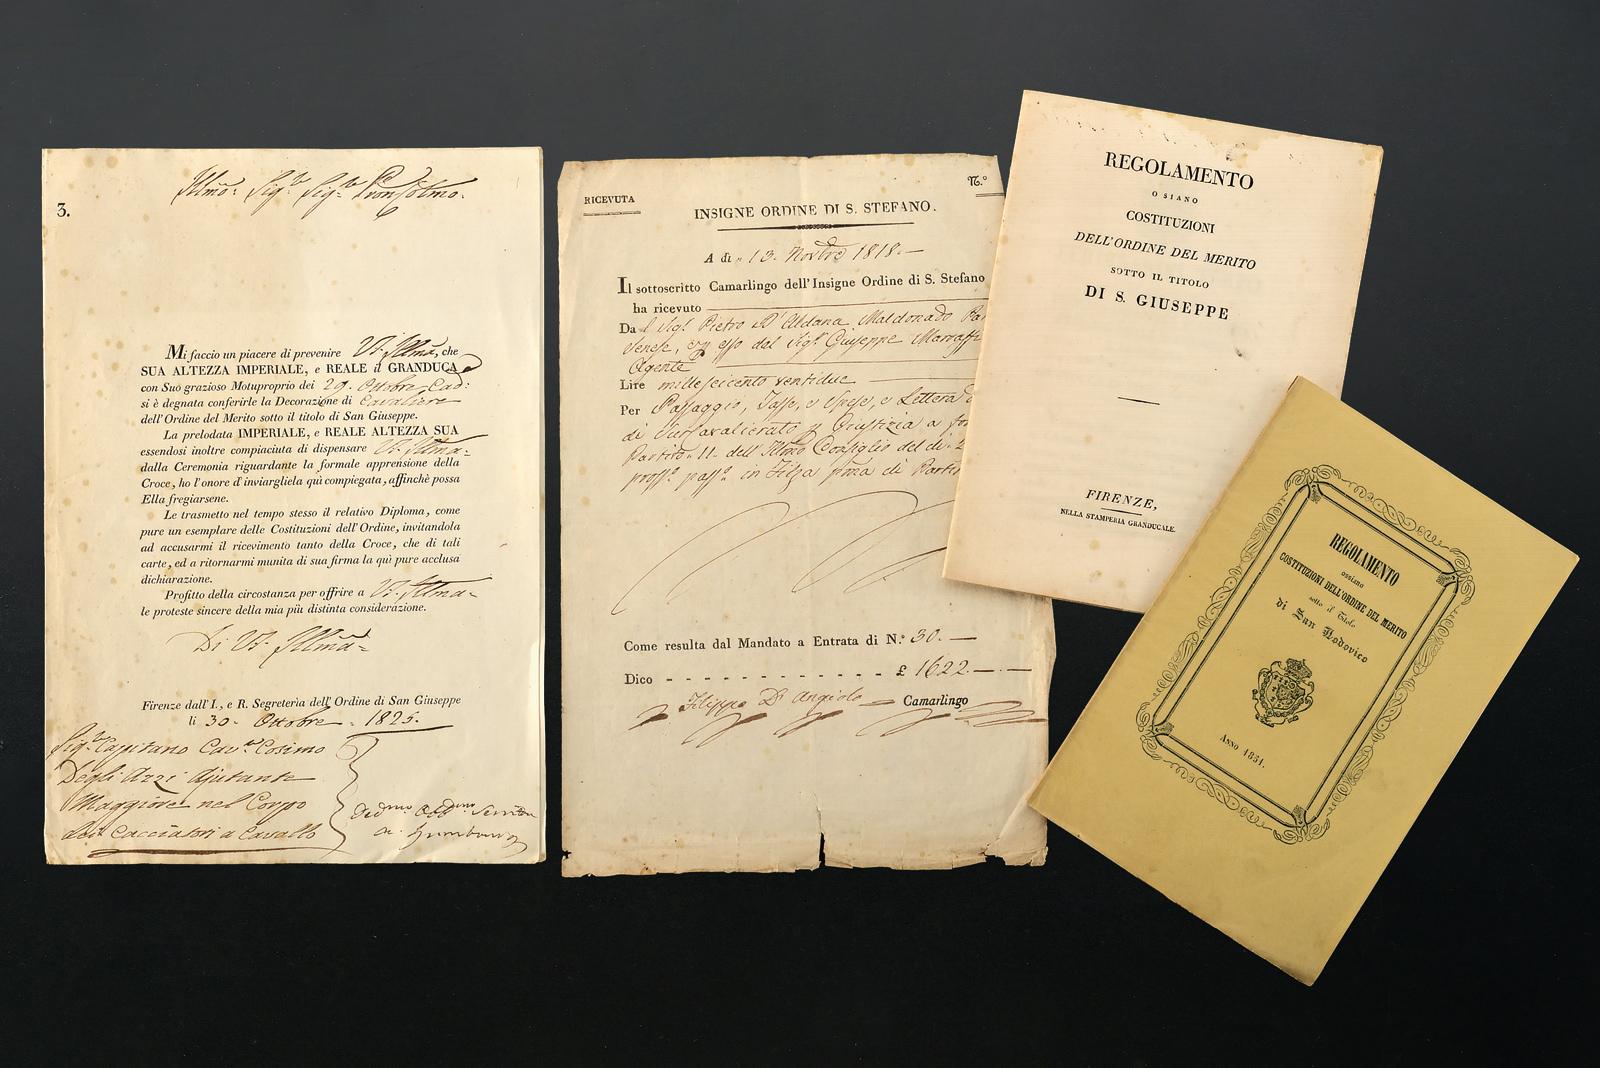 3.
Illmo: Sig.re Sig.re Pron Colmo.
Mi faccio un piacere di prevenire V.S. Illma, che
SUA ALTEZZA IMPERIALE, e REALE il GRANDUCA
con Suo grazioso Motuproprio dei 29. Ottobre Cad:
si è degnata conferirle la Decorazione di Cavaliere
dell'Ordine del Merito sotto il titolo di San Giuseppe.
La prelodata IMPERIALE, e REALE ALTEZZA SUA
essendosi inoltre compiaciuta di dispensare V.S. Illma
dalla Ceremonia riguardante la formale apprensione della
Croce, ho l'onore d'inviargliela quì compiegata, affinchè possa
Ella fregiarsene.
Le trasmetto nel tempo stesso il relativo Diploma, come
pure un esemplare delle Costituzioni dell'Ordine, invitandola
ad accusarmi il ricevimento tanto della Croce, che di tali
carte, ed a ritornarmi munita di sua firma la quì pure acclusa
dichiarazione.
Profitto della circostanza per offrire a V.S. Illma
le proteste sincere della mia più distinta considerazione.
Di V.S. Illma
Firenze dall'I., e R. Segreteria dell'Ordine di San Giuseppe
li 30. Ottobre 1825.
Sig.re Capitano Cav.re Cosimo
Degli Azzi Ajutante
Maggiore nel Corpo
dei Cacciatori a Cavallo
RICEVUTA
N.°
INSIGNE ORDINE DI S. STEFANO.
A dì 13. Novbre 1818.
Il sottoscritto Camarlingo dell'Insigne Ordine di S. Stefano
ha ricevuto
Da l Sig.r Pietro D'Aldana Maldonado
Senese, e p esso dal Sig.r Giuseppe
Agente
Lire mille seicento ventidue
Per Passaggio, Tasse, e Spese, e Lettera
di Giustizia a
Partito 11. dell'Illmo Consiglio del dì
pross.o pass.o in Filza
Come resulta dal Mandato a Entrata di N.° 30.
Dico - - - - - - - - - - - - £ 1622.
Filippo D'Angiolo Camarlingo
REGOLAMENTO
O SIANO
COSTITUZIONI
DELL'ORDINE DEL MERITO
SOTTO IL TITOLO
DI S. GIUSEPPE
FIRENZE,
NELLA STAMPERIA GRANDUCALE.
REGOLAMENTO
ossiano
COSTITUZIONI DELL'ORDINE DEL MERITO
sotto il Titolo
di San Lodovico
Anno 1851.